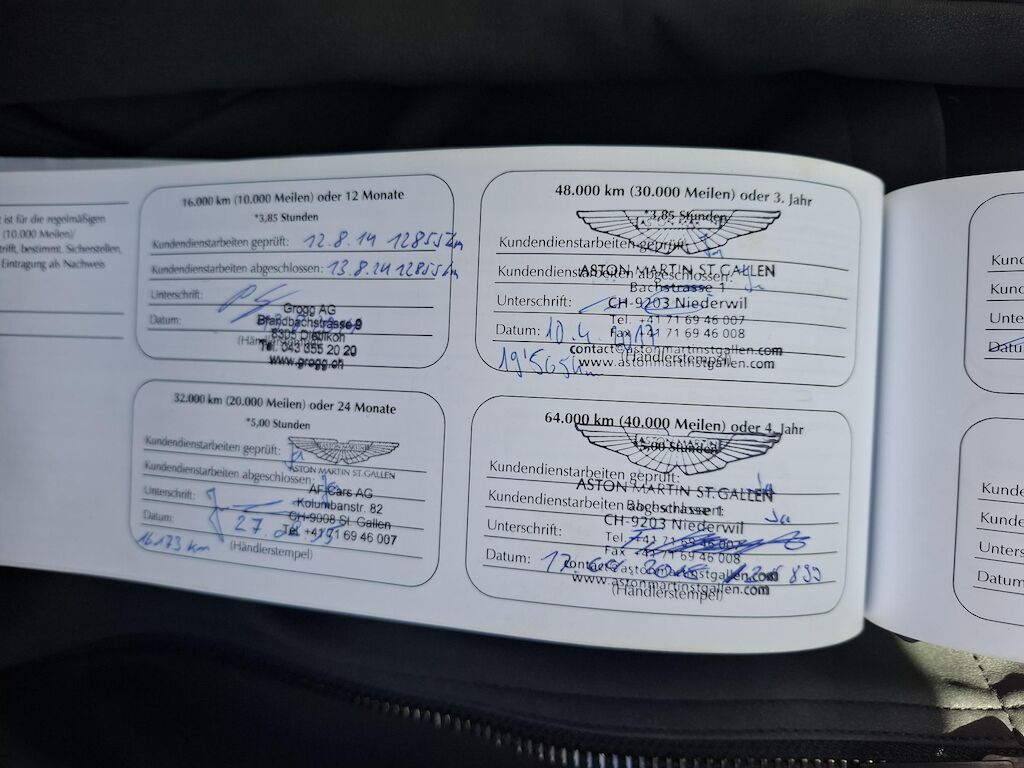 t ist für die regelmäßigen
(10.000 Meilen)/
trifft, bestimmt. Sicherstellen,
Eintragung als Nachweis
16.000 km (10.000 Meilen) oder 12 Monate
*3,85 Stunden
Kundendienstarbeiten geprüft: 12.8.14 12855 km
Kundendienstarbeiten abgeschlossen: 13.8.14 12855 km
Unterschrift:
Datum:
Grogg AG
Brandbachstrasse 9
8305 Dietlikon
Tel. 043 355 20 20
www.grogg.ch
32.000 km (20.000 Meilen) oder 24 Monate
*5,00 Stunden
Kundendienstarbeiten geprüft: Ja
ASTON MARTIN ST.GALLEN
Kundendienstarbeiten abgeschlossen: Ja
AF Cars AG
Kolumbanstr. 82
CH-9008 St. Gallen
Tel. +41 71 69 46 007
Unterschrift:
Datum: 27.
16173 km
(Händlerstempel)
48.000 km (30.000 Meilen) oder 3. Jahr
*3,85 Stunden
Kundendienstarbeiten geprüft: Ja
Kundendienstarbeiten abgeschlossen: Ja
ASTON MARTIN ST.GALLEN
Bachstrasse 1
CH-9203 Niederwil
Tel. +41 71 69 46 007
Fax +41 71 69 46 008
contact@astonmartinstgallen.com
www.astonmartinstgallen.com
Unterschrift:
Datum: 10.4.2017
19'565 km
(Händlerstempel)
64.000 km (40.000 Meilen) oder 4. Jahr
*5,00 Stunden
Kundendienstarbeiten geprüft: Ja
Kundendienstarbeiten abgeschlossen: Ja
ASTON MARTIN ST.GALLEN
Bachstrasse 1
CH-9203 Niederwil
Tel. +41 71 69 46 007
Fax +41 71 69 46 008
contact@astonmartinstgallen.com
www.astonmartinstgallen.com
Unterschrift:
Datum:
(Händlerstempel)
Kund
Kund
Unte
Datu
Kund
Kunde
Unters
Datum